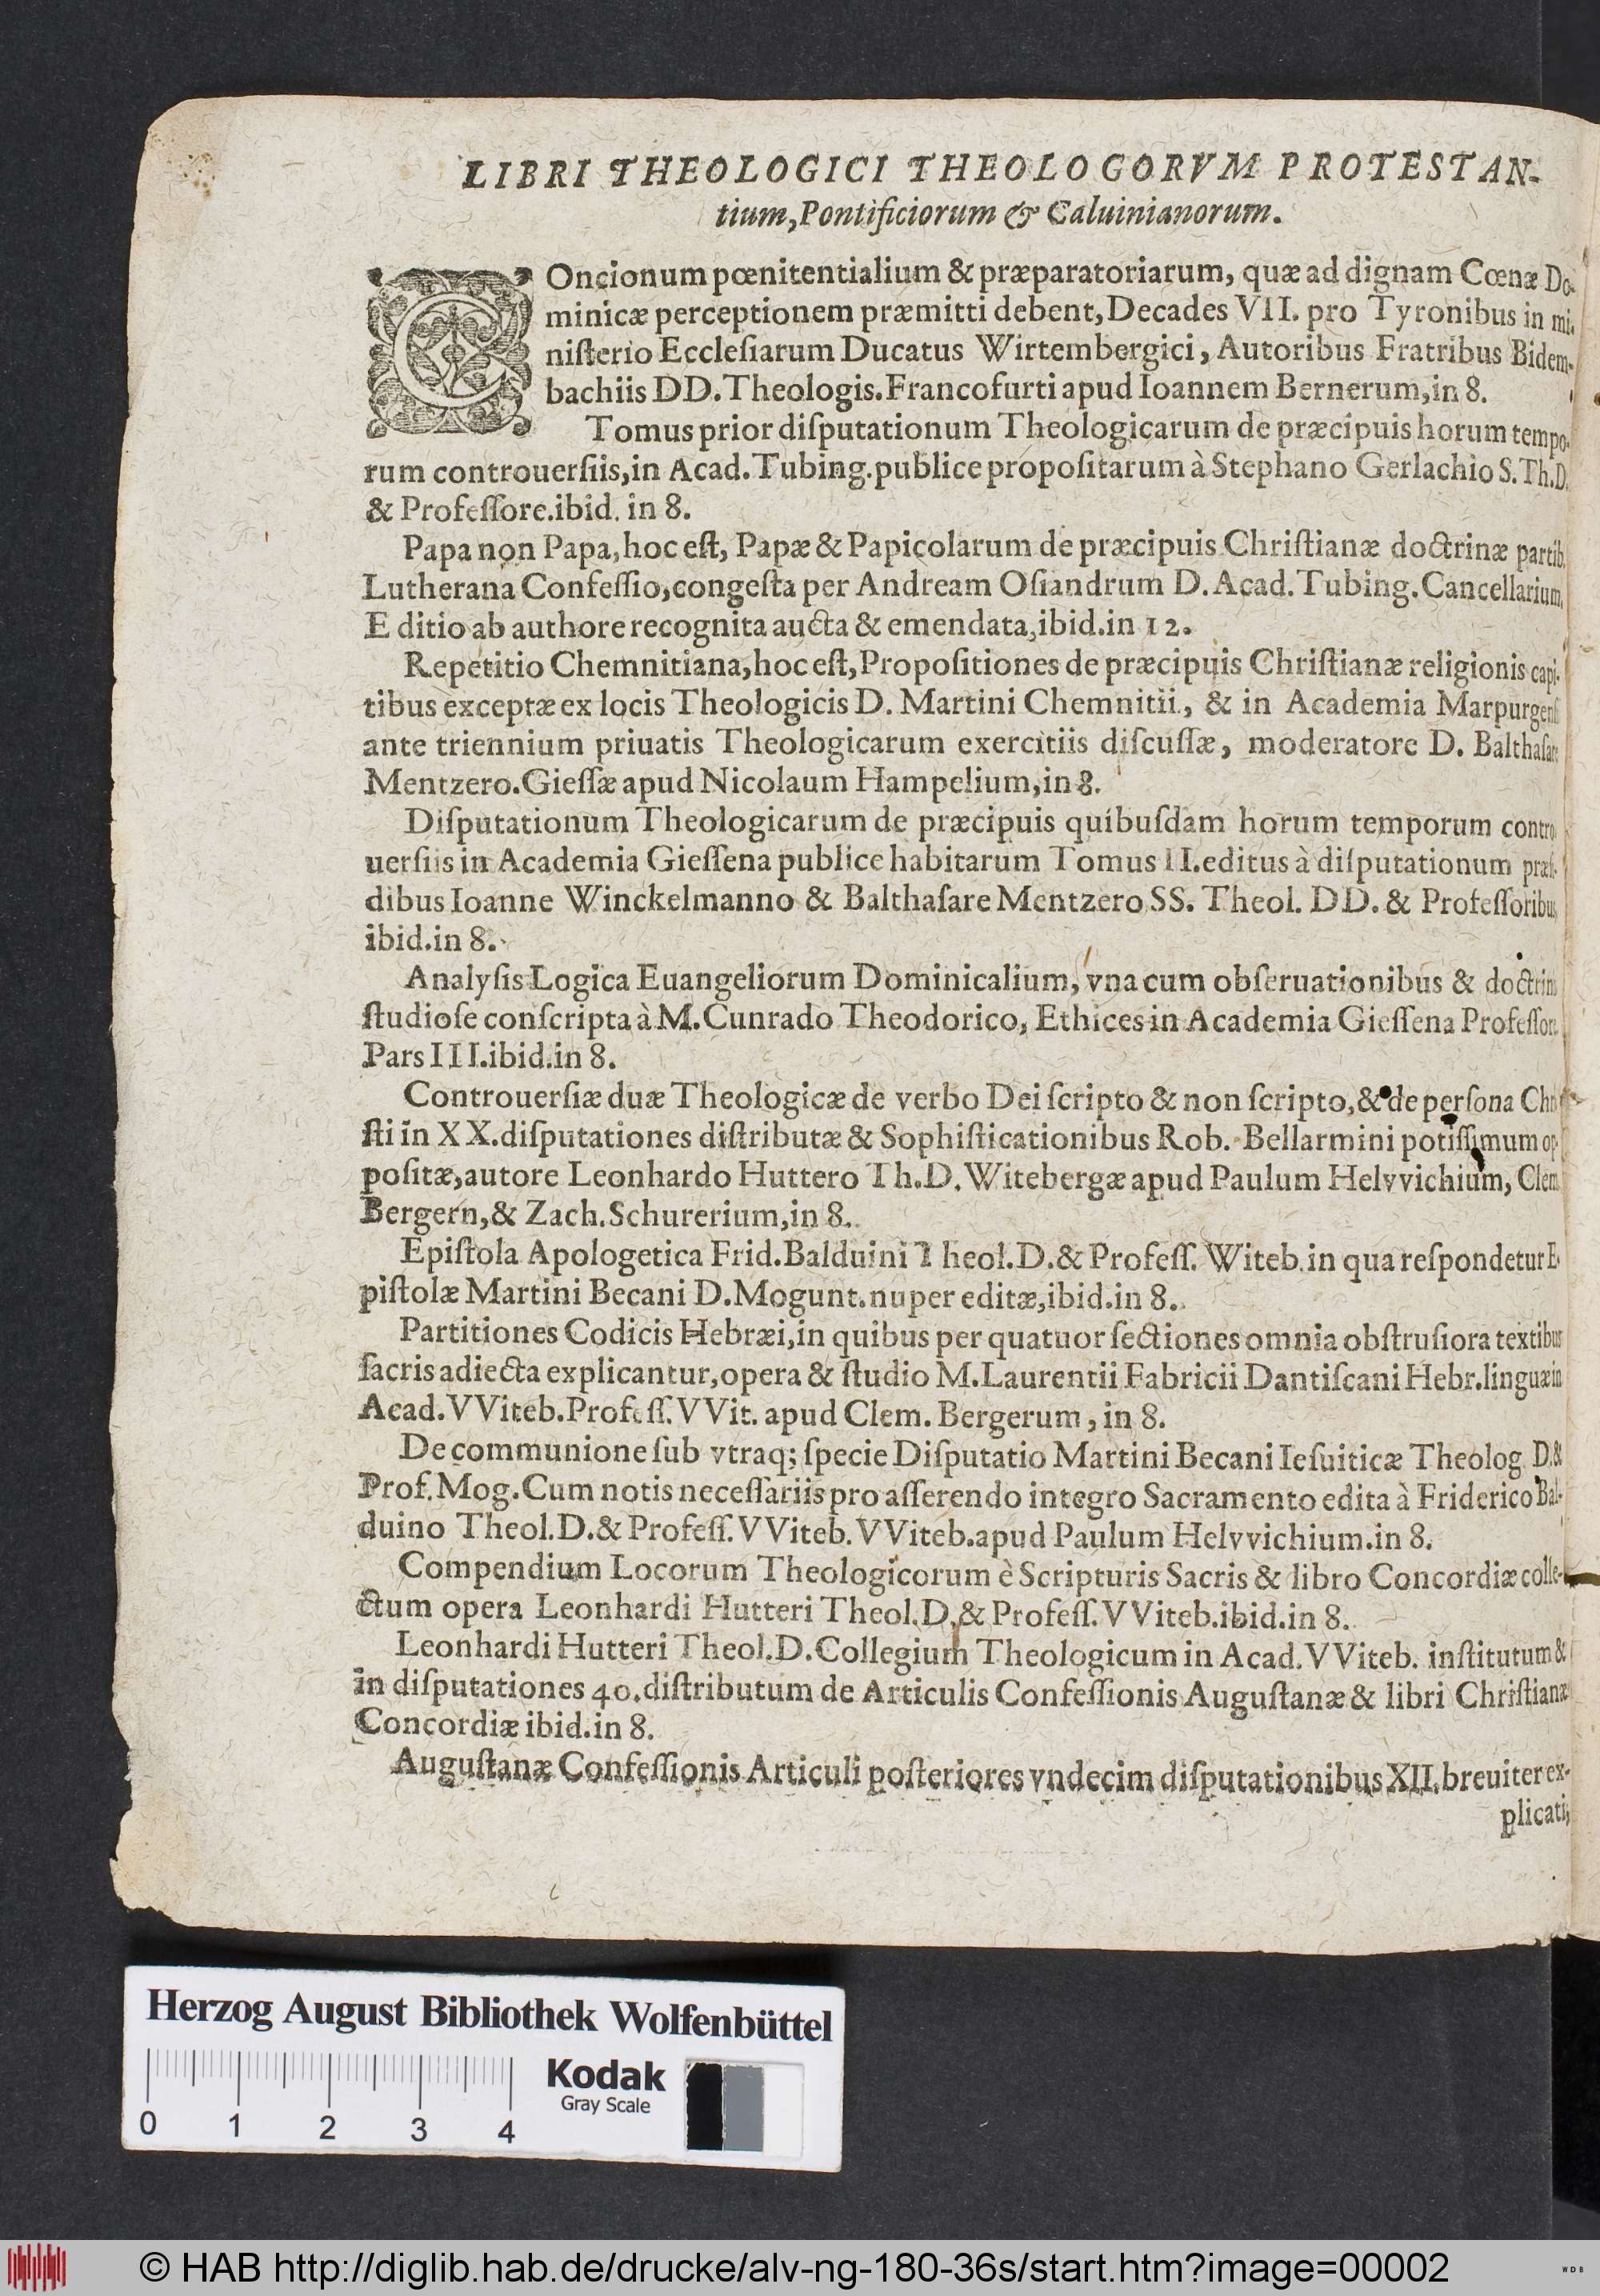 LIBRI THEOLOGICI THEOLOGORVM PROTESTAN-
tium, Pontificiorum & Caluinianorum.
COncionum pœnitentialium & præparatoriarum, quæ ad dignam Cœnæ Do-
minicæ perceptionem præmitti debent, Decades VII. pro Tyronibus in mi-
niſterio Eccleſiarum Ducatus Wirtembergici, Autoribus Fratribus Bidem-
bachiis DD. Theologis. Francofurti apud Ioannem Bernerum, in 8.
Tomus prior diſputationum Theologicarum de præcipuis horum tempo-
rum controuerſiis, in Acad. Tubing. publice propoſitarum à Stephano Gerlachio S. Th. D.
& Profeſſore. ibid. in 8.
Papa non Papa, hoc eſt, Papæ & Papicolarum de præcipuis Chriſtianæ doctrinæ partib.
Lutherana Confeſſio, congeſta per Andream Oſiandrum D. Acad. Tubing. Cancellarium,
Editio ab authore recognita aucta & emendata, ibid. in 12.
Repetitio Chemnitiana, hoc eſt, Propoſitiones de præcipuis Chriſtianæ religionis capi-
tibus exceptæ ex locis Theologicis D. Martini Chemnitii, & in Academia Marpurgenſi
ante triennium priuatis Theologicarum exercitiis diſcuſſæ, moderatore D. Balthaſare
Mentzero. Gieſſæ apud Nicolaum Hampelium, in 8.
Diſputationum Theologicarum de præcipuis quibuſdam horum temporum contro-
uerſiis in Academia Gieſſena publice habitarum Tomus II. editus à diſputationum præſi-
dibus Ioanne Winckelmanno & Balthaſare Mentzero SS. Theol. DD. & Profeſſoribus
ibid. in 8.
Analyſis Logica Euangeliorum Dominicalium, vna cum obſeruationibus & doctrinis
ſtudioſe conſcripta à M. Cunrado Theodorico, Ethices in Academia Gieſſena Profeſſore
Pars III. ibid. in 8.
Controuerſiæ duæ Theologicæ de verbo Dei ſcripto & non ſcripto, & de perſona Chri-
ſti in XX. diſputationes diſtributæ & Sophiſticationibus Rob. Bellarmini potiſſimum op-
poſitæ, autore Leonhardo Huttero Th. D. Witebergæ apud Paulum Helvvichium, Clem.
Bergern, & Zach. Schurerium, in 8.
Epiſtola Apologetica Frid. Balduini Theol. D. & Profeſſ. Witeb. in qua reſpondetur E-
piſtolæ Martini Becani D. Mogunt. nuper editæ, ibid. in 8.
Partitiones Codicis Hebræi, in quibus per quatuor ſectiones omnia obſtruſiora textibus
ſacris adiecta explicantur, opera & ſtudio M. Laurentii Fabricii Dantiſcani Hebr. linguæ in
Acad. VViteb. Profeſſ. VVit. apud Clem. Bergerum, in 8.
De communione ſub vtraq; ſpecie Diſputatio Martini Becani Ieſuiticæ Theolog. D. &
Prof. Mog. Cum notis neceſſariis pro aſſerendo integro Sacramento edita à Friderico Bal-
duino Theol. D. & Profeſſ. VViteb. VViteb. apud Paulum Helvvichium. in 8.
Compendium Locorum Theologicorum è Scripturis Sacris & libro Concordiæ colle-
ctum opera Leonhardi Hutteri Theol. D. & Profeſſ. VViteb. ibid. in 8.
Leonhardi Hutteri Theol. D. Collegium Theologicum in Acad. VViteb. inſtitutum &
in diſputationes 40. diſtributum de Articulis Confeſſionis Auguſtanæ & libri Chriſtianæ
Concordiæ ibid. in 8.
Auguſtanæ Confeſſionis Articuli poſteriores vndecim diſputationibus XII. breuiter ex-
plicati,
Herzog August Bibliothek Wolfenbüttel
Kodak
Gray Scale
0 1 2 3 4
© HAB http://diglib.hab.de/drucke/alv-ng-180-36s/start.htm?image=00002
WDB